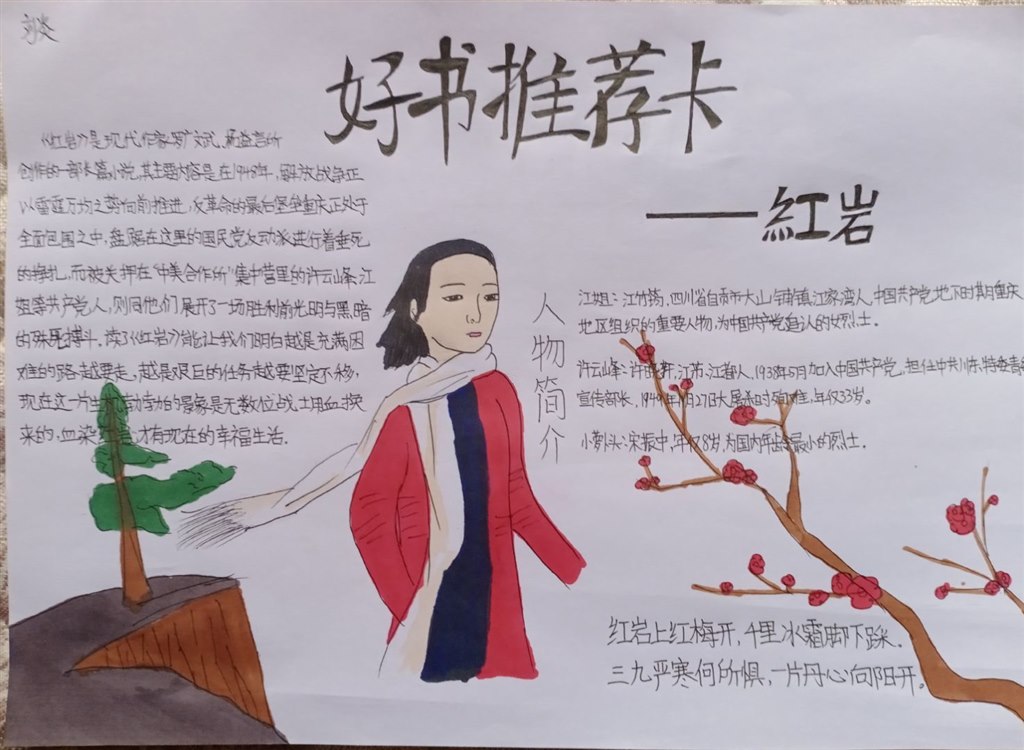 好书推荐卡
——紅岩
《红岩》是现代作家罗广斌、杨益言所
创作的一部长篇小说,其主要内容是在1948年,解放战争正
以雷霆万均之势向前推进,反革命的最后堡垒重庆正处于
全面包围之中,盘踞在这里的国民党反动派进行着垂死
的挣扎,而被关押在“中美合作所”集中营里的许云峰、江
姐等共产党人,则同他们展开了一场胜利前光明与黑暗
的殊死搏斗。读了《红岩》能让我们明白越是充满困
难的路越要走,越是艰巨的任务越要坚定不移,
现在这一片生机勃勃的景象是无数位战士用血换
来的,血染,才有现在的幸福生活.
人物简介
江姐:江竹筠,四川省自贡市大山铺镇江家湾人,中国共产党地下时期重庆
地区组织的重要人物,为中国共产党追认的女烈士。
许云峰:许,江苏江人,1938年5月加入中国共产党,担任中共川东特委
宣传部长,1949年月27日大屠杀时殉难,年仅33岁。
小萝卜头:宋振中,年仅8岁,为国内年龄最小的烈士.
红岩上红梅开,千里冰霜脚下踩.
三九严寒何所惧,一片丹心向阳开.